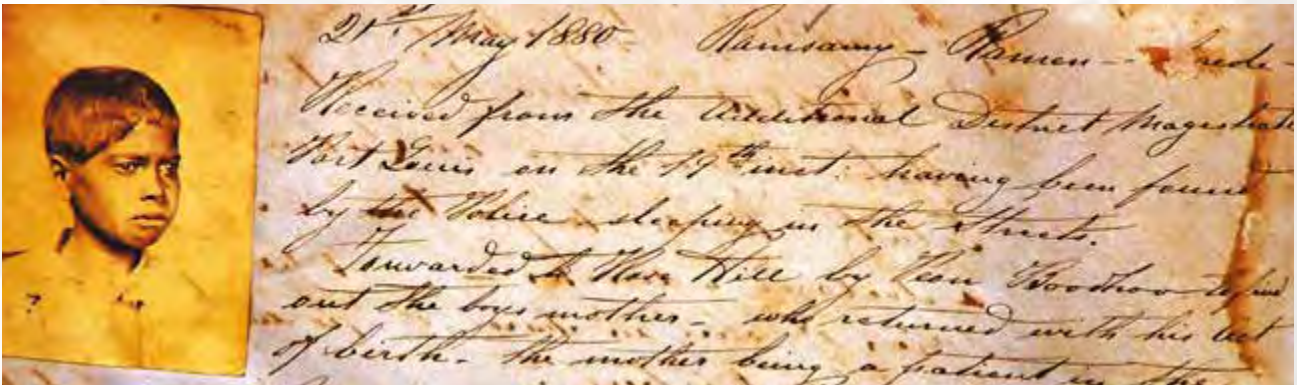 21st May 1880 - Ramsamy - Ramen -
Received from the Additional District Magistrate
Port Louis on the 19th inst. having been found
by the Police sleeping in the streets.
Forwarded to Rose Hill by Boodhoo to find
out the boys mother - who returned with his act
of birth - the mother being a patient in the